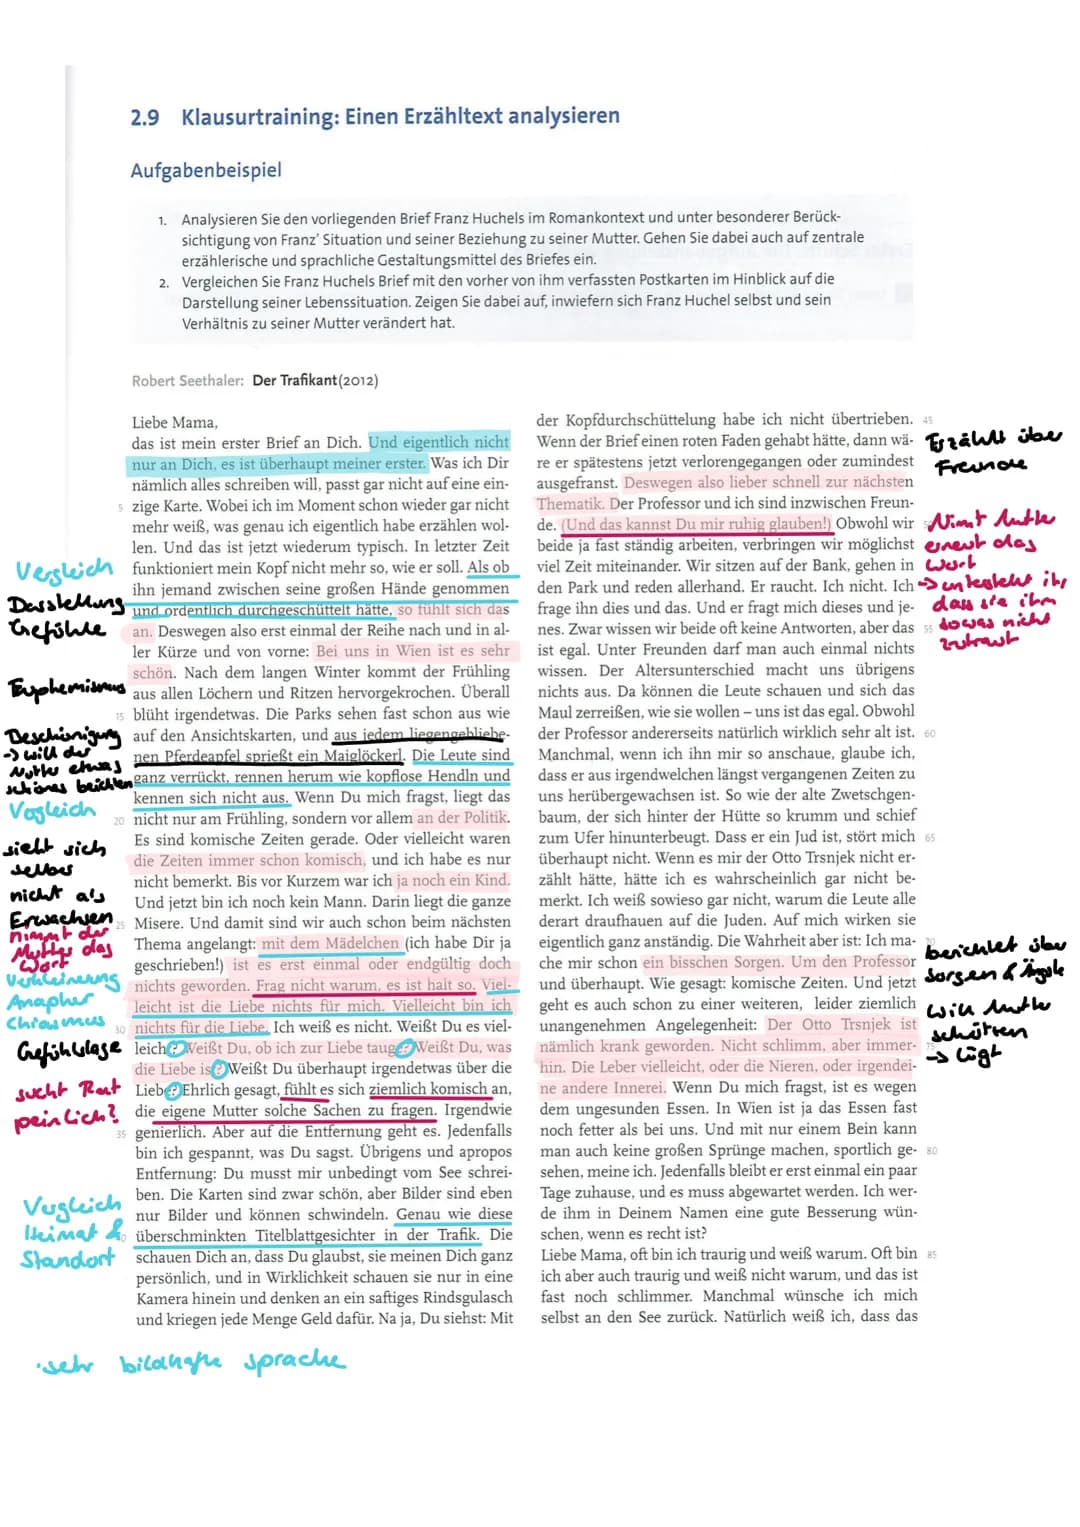 2.9 Klausurtraining: Einen Erzähltext analysieren
Aufgabenbeispiel
1. Analysieren Sie den vorliegenden Brief Franz Huchels im Romankontext und unter besonderer Berück-
sichtigung von Franz' Situation und seiner Beziehung zu seiner Mutter. Gehen Sie dabei auch auf zentrale
erzählerische und sprachliche Gestaltungsmittel des Briefes ein.
2. Vergleichen Sie Franz Huchels Brief mit den vorher von ihm verfassten Postkarten im Hinblick auf die
Darstellung seiner Lebenssituation. Zeigen Sie dabei auf, inwiefern sich Franz Huchel selbst und sein
Verhältnis zu seiner Mutter verändert hat.
Robert Seethaler: Der Trafikant (2012)
Liebe Mama,
das ist mein erster Brief an Dich. Und eigentlich nicht
nur an Dich, es ist überhaupt meiner erster. Was ich Dir
nämlich alles schreiben will, passt gar nicht auf eine ein-
5 zige Karte. Wobei ich im Moment schon wieder gar nicht
mehr weiß, was genau ich eigentlich habe erzählen wol-
len. Und das ist jetzt wiederum typisch. In letzter Zeit
funktioniert mein Kopf nicht mehr so, wie er soll. Als ob
ihn jemand zwischen seine großen Hände genommen
und ordentlich durchgeschüttelt hätte, so fühlt sich das
an. Deswegen also erst einmal der Reihe nach und in al-
ler Kürze und von vorne: Bei uns in Wien ist es sehr
schön. Nach dem langen Winter kommt der Frühling
aus allen Löchern und Ritzen hervorgekrochen. Überall
15 blüht irgendetwas. Die Parks sehen fast schon aus wie
auf den Ansichtskarten, und aus jedem liegengebliebe-
nen Pferdeapfel sprießt ein Maiglöckerl. Die Leute sind
ganz verrückt, rennen herum wie kopflose Hendln und
kennen sich nicht aus. Wenn Du mich fragst, liegt das
20 nicht nur am Frühling, sondern vor allem an der Politik.
Es sind komische Zeiten gerade. Oder vielleicht waren
die Zeiten immer schon komisch, und ich habe es nur
nicht bemerkt. Bis vor Kurzem war ich ja noch ein Kind.
Und jetzt bin ich noch kein Mann. Darin liegt die ganze
25 Misere. Und damit sind wir auch schon beim nächsten
Thema angelangt: mit dem Mädelchen (ich habe Dir ja
geschrieben!) ist es erst einmal oder endgültig doch
nichts geworden. Frag nicht warum, es ist halt so. Viel-
leicht ist die Liebe nichts für mich. Vielleicht bin ich
30 nichts für die Liebe. Ich weiß es nicht. Weißt Du es viel-
leicht? Weißt Du, ob ich zur Liebe tauge? Weißt Du, was
die Liebe ist? Weißt Du überhaupt irgendetwas über die
Liebe? Ehrlich gesagt, fühlt es sich ziemlich komisch an,
die eigene Mutter solche Sachen zu fragen. Irgendwie
35 genierlich. Aber auf die Entfernung geht es. Jedenfalls
bin ich gespannt, was Du sagst. Übrigens und apropos
Entfernung: Du musst mir unbedingt vom See schrei-
ben. Die Karten sind zwar schön, aber Bilder sind eben
nur Bilder und können schwindeln. Genau wie diese
überschminkten Titelblattgesichter in der Trafik. Die
schauen Dich an, dass Du glaubst, sie meinen Dich ganz
persönlich, und in Wirklichkeit schauen sie nur in eine
Kamera hinein und denken an ein saftiges Rindsgulasch
und kriegen jede Menge Geld dafür. Na ja, Du siehst: Mit
der Kopfdurchschüttelung habe ich nicht übertrieben. 45
Wenn der Brief einen roten Faden gehabt hätte, dann wä-
re er spätestens jetzt verlorengegangen oder zumindest
ausgefranst. Deswegen also lieber schnell zur nächsten
Thematik. Der Professor und ich sind inzwischen Freun-
de. (Und das kannst Du mir ruhig glauben!) Obwohl wir
beide ja fast ständig arbeiten, verbringen wir möglichst
viel Zeit miteinander. Wir sitzen auf der Bank, gehen in
den Park und reden allerhand. Er raucht. Ich nicht. Ich
frage ihn dies und das. Und er fragt mich dieses und je-
nes. Zwar wissen wir beide oft keine Antworten, aber das 55
ist egal. Unter Freunden darf man auch einmal nichts
wissen. Der Altersunterschied macht uns übrigens
nichts aus. Da können die Leute schauen und sich das
Maul zerreißen, wie sie wollen – uns ist das egal. Obwohl
der Professor andererseits natürlich wirklich sehr alt ist. 60
Manchmal, wenn ich ihn mir so anschaue, glaube ich,
dass er aus irgendwelchen längst vergangenen Zeiten zu
uns herübergewachsen ist. So wie der alte Zwetschgen-
baum, der sich hinter der Hütte so krumm und schief
zum Ufer hinunterbeugt. Dass er ein Jud ist, stört mich 65
überhaupt nicht. Wenn es mir der Otto Trsnjek nicht er-
zählt hätte, hätte ich es wahrscheinlich gar nicht be-
merkt. Ich weiß sowieso gar nicht, warum die Leute alle
derart draufhauen auf die Juden. Auf mich wirken sie
eigentlich ganz anständig. Die Wahrheit aber ist: Ich ma- 70
che mir schon ein bisschen Sorgen. Um den Professor
und überhaupt. Wie gesagt: komische Zeiten. Und jetzt
geht es auch schon zu einer weiteren, leider ziemlich
unangenehmen Angelegenheit: Der Otto Trsnjek ist
nämlich krank geworden. Nicht schlimm, aber immer- 75
hin. Die Leber vielleicht, oder die Nieren, oder irgendei-
ne andere Innerei. Wenn Du mich fragst, ist es wegen
dem ungesunden Essen. In Wien ist ja das Essen fast
noch fetter als bei uns. Und mit nur einem Bein kann
man auch keine großen Sprünge machen, sportlich ge- 80
sehen, meine ich. Jedenfalls bleibt er erst einmal ein paar
Tage zuhause, und es muss abgewartet werden. Ich wer-
de ihm in Deinem Namen eine gute Besserung wün-
schen, wenn es recht ist?
Liebe Mama, oft bin ich traurig und weiß warum. Oft bin 85
ich aber auch traurig und weiß nicht warum, und das ist
fast noch schlimmer. Manchmal wünsche ich mich
selbst an den See zurück. Natürlich weiß ich, dass das
Vergleich
Darstellung
Gefühle
Euphemismus
Beschönigung
-> will der
Mutter etwas
schönes berichten
Vergleich
sieht sich
selber
nicht als
Erwachsen
nimmt der
Mutter das
Wort
Verkleinerung
Anapher
Chiasmus
Gefühlslage
sucht Rat
peinlich?
Vergleich
Heimat &
Standort
·sehr bildhafte sprache
Erzählt über
Freunde
Nimmt Mutter
erneut das
Wort
-> unterstellt ihr,
dass sie ihm
sowas nicht
zutraut
berichtet über
Sorgen & Ängste
will Mutter
schützen
-> lügt